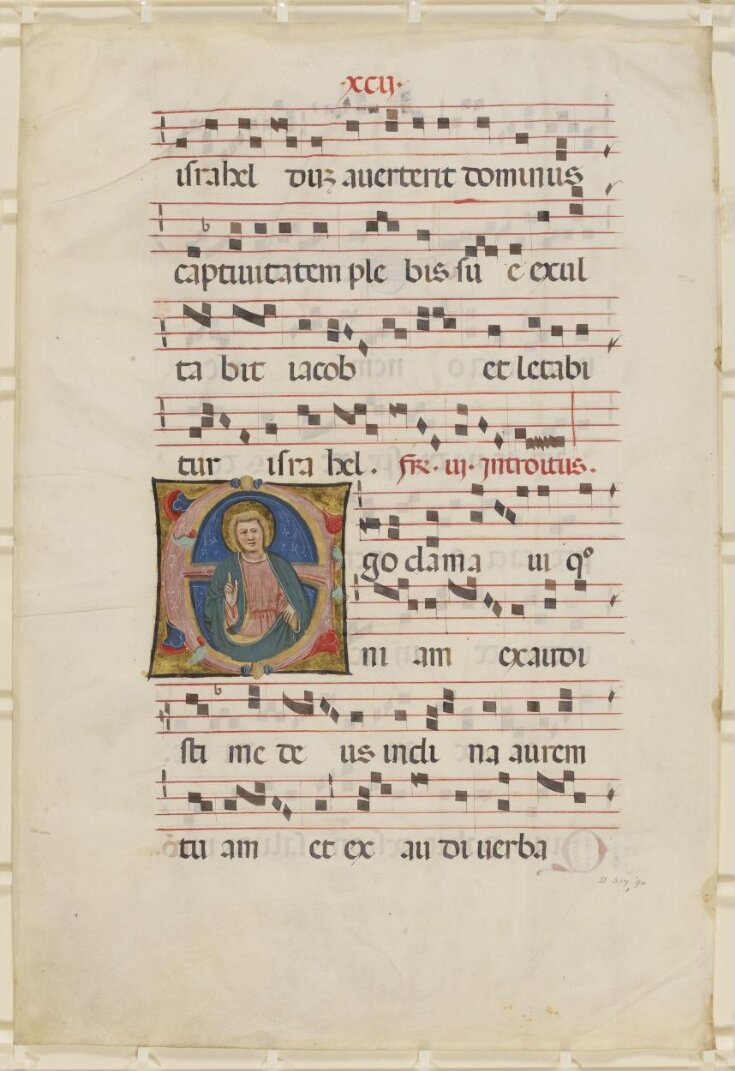 ·xcij·
israhel dum auerterit dominus
captiuitatem ple bis su e exul
ta bit iacob et letabi
tur isra hel. fr. iij. Introitus.
E go clama ui qo
ni am exaudi
sti me de us incli na aurem
tu am et ex au di uerba